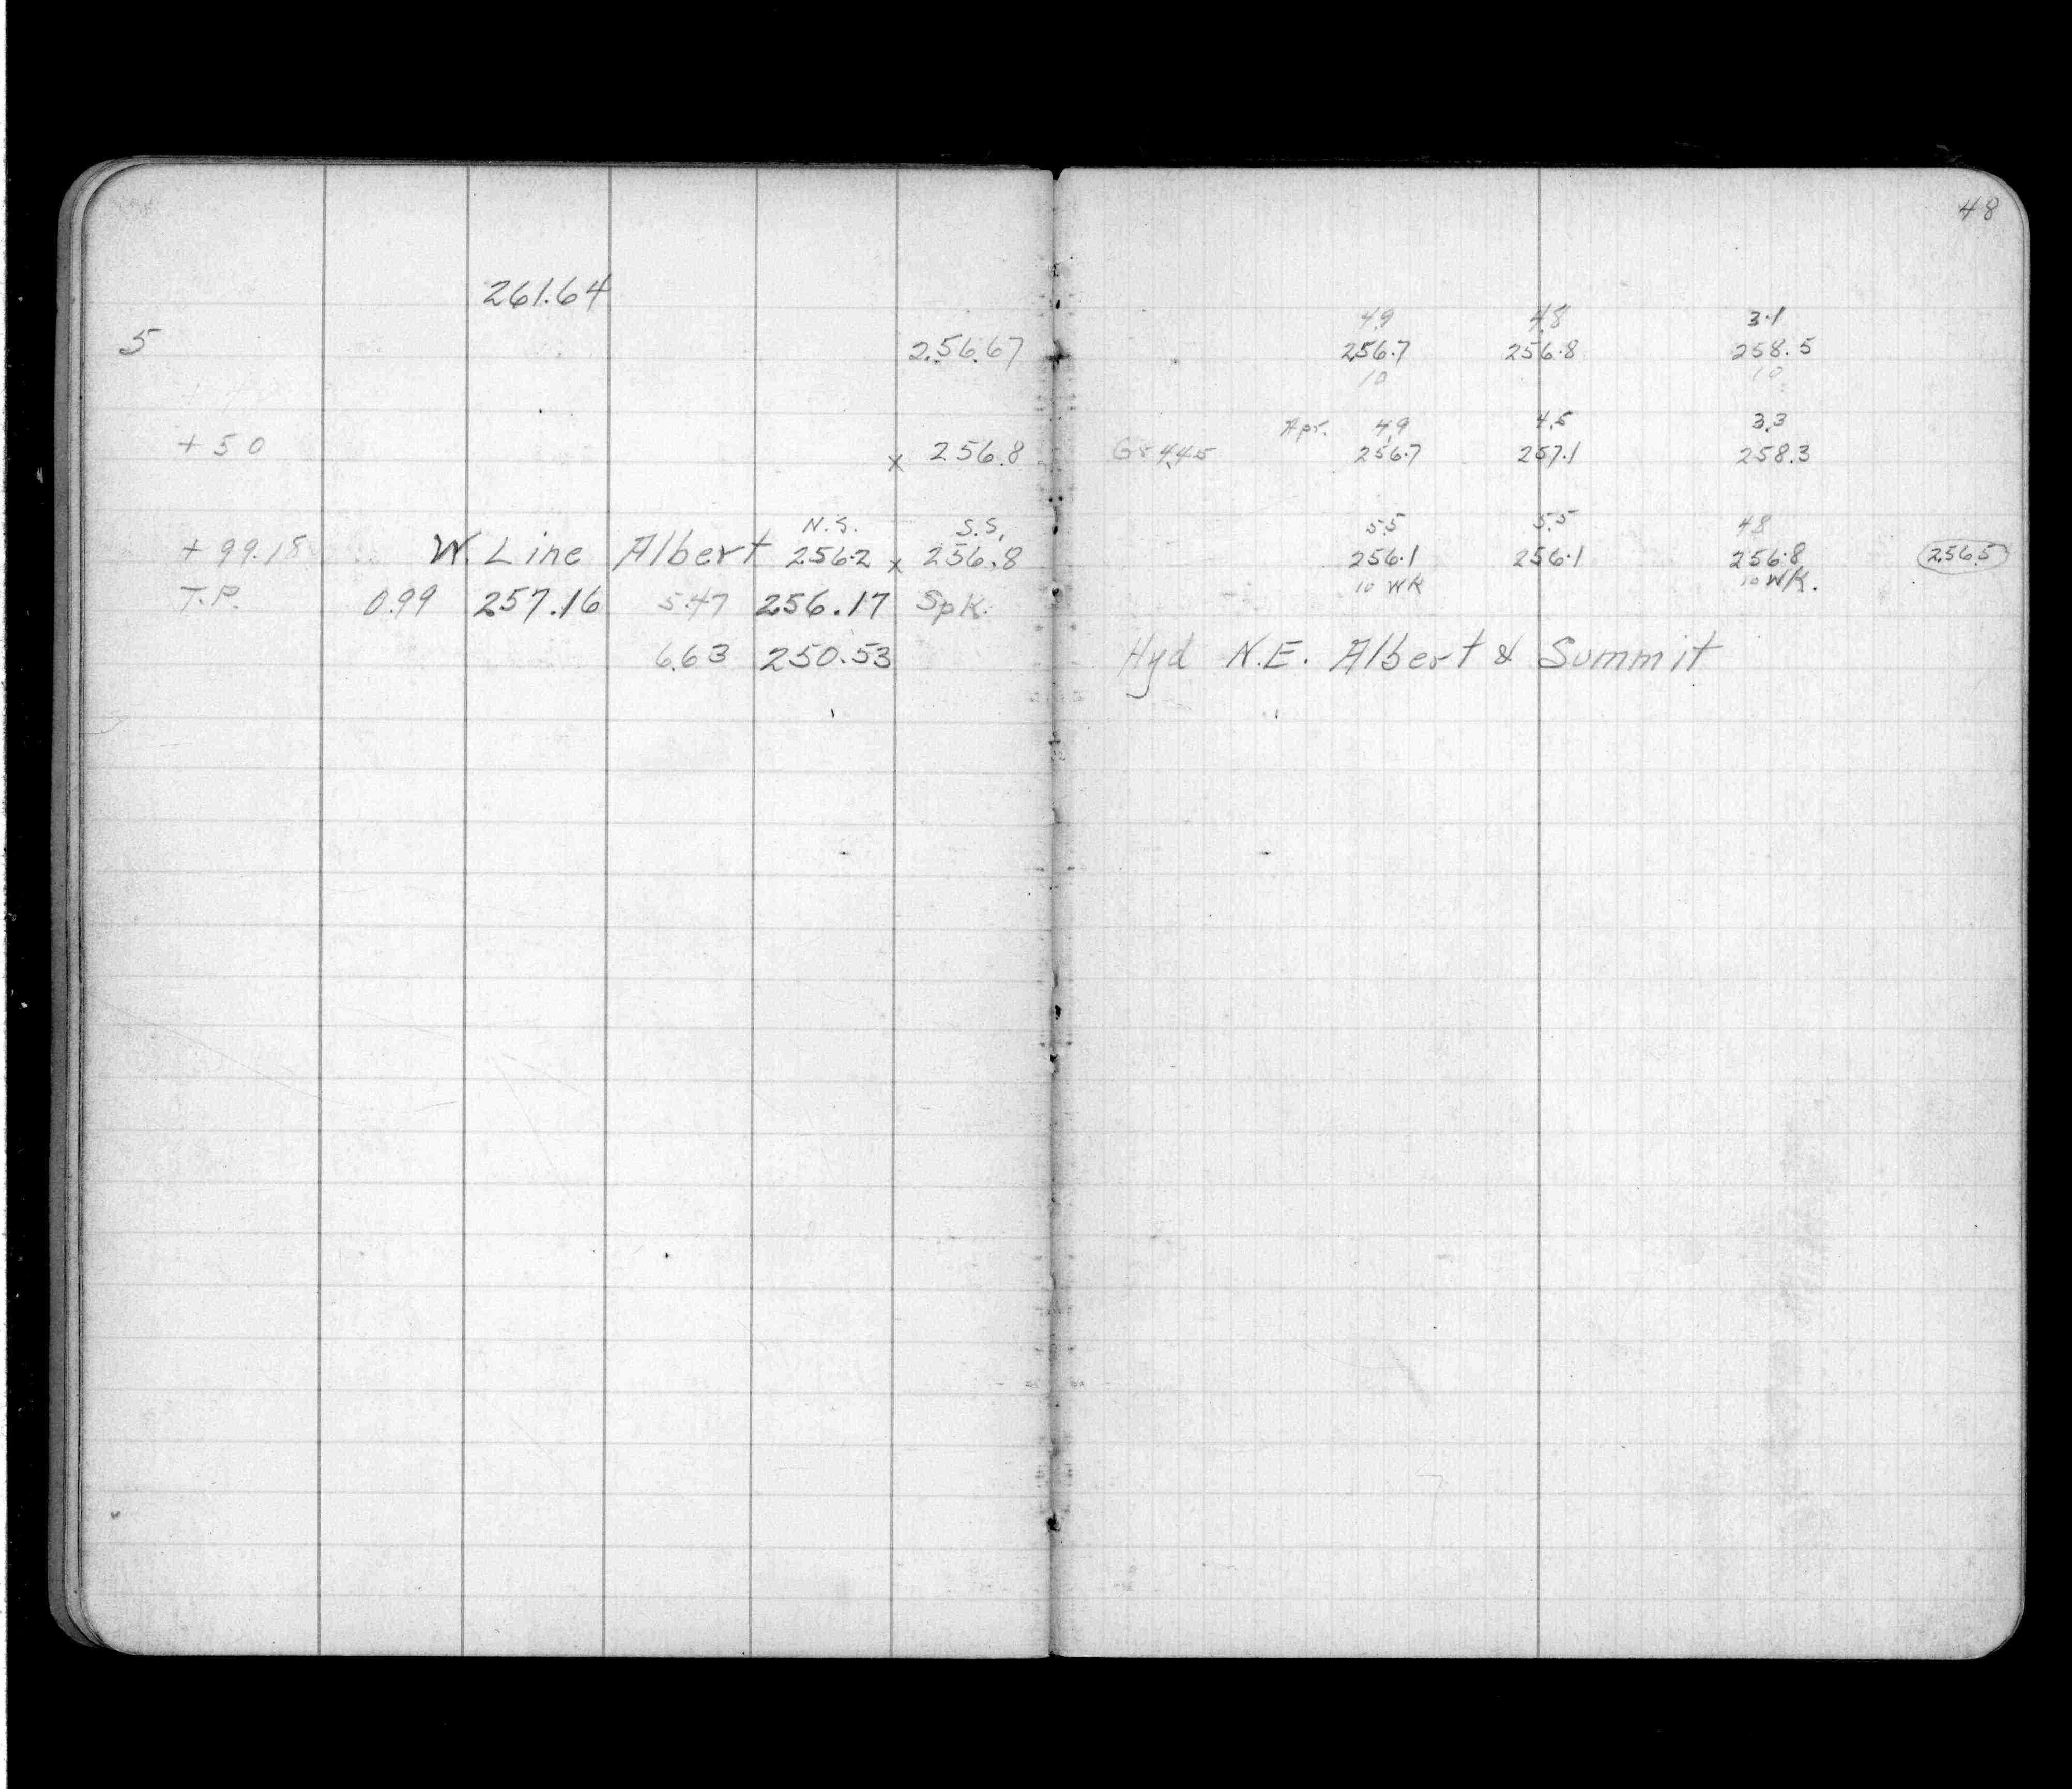 261.64
5 256.67
+50 x 256.8
N.S. S.S.
+99.18 W. Line Albert 256.2 x 256.8
T.P. 0.99 257.16 5.47 256.17 Spk.
6.63 250.53
48
4.9 4.8 3.1
256.7 256.8 258.5
10 10
Apr. 4.9 4.5 3.3
256.7 257.1 258.3
5.5 5.5 4.8
256.1 256.1 256.8 256.5
10 WK 10 WK.
Hyd N.E. Albert & Summit